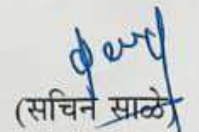 (सचिन साळे)